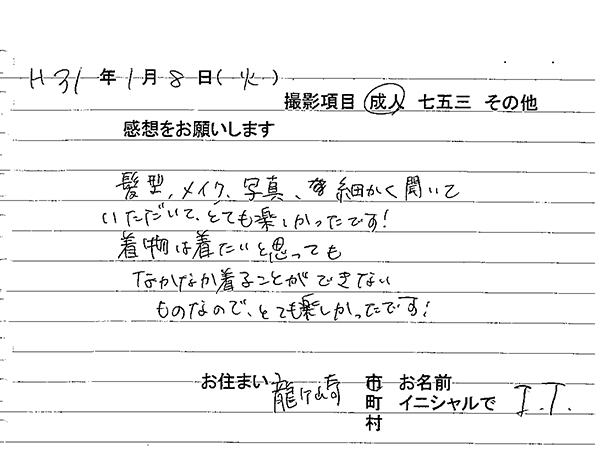 H31年1月8日(火)
撮影項目 成人 七五三 その他
感想をお願いします
髪型、メイク、写真、細かく聞いて
いただいて、とても楽しかったです!
着物は着たいと思っても
なかなか着ることができない
ものなので、とても楽しかったです!
お住まい 龍ケ崎 市 お名前
町 イニシャルで I.T.
村